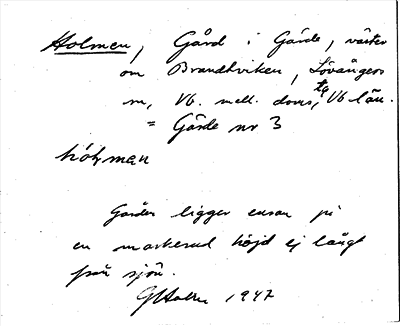 Holmen, Gård i Gärde, väster
om Brandtviken, Lövångers
sn, Vb. mell. doms, Vb län.
= Gärde nr 3
hólman
Gården ligger ensam på
en markerad höjd ej långt
från sjön.
GHolm 1947